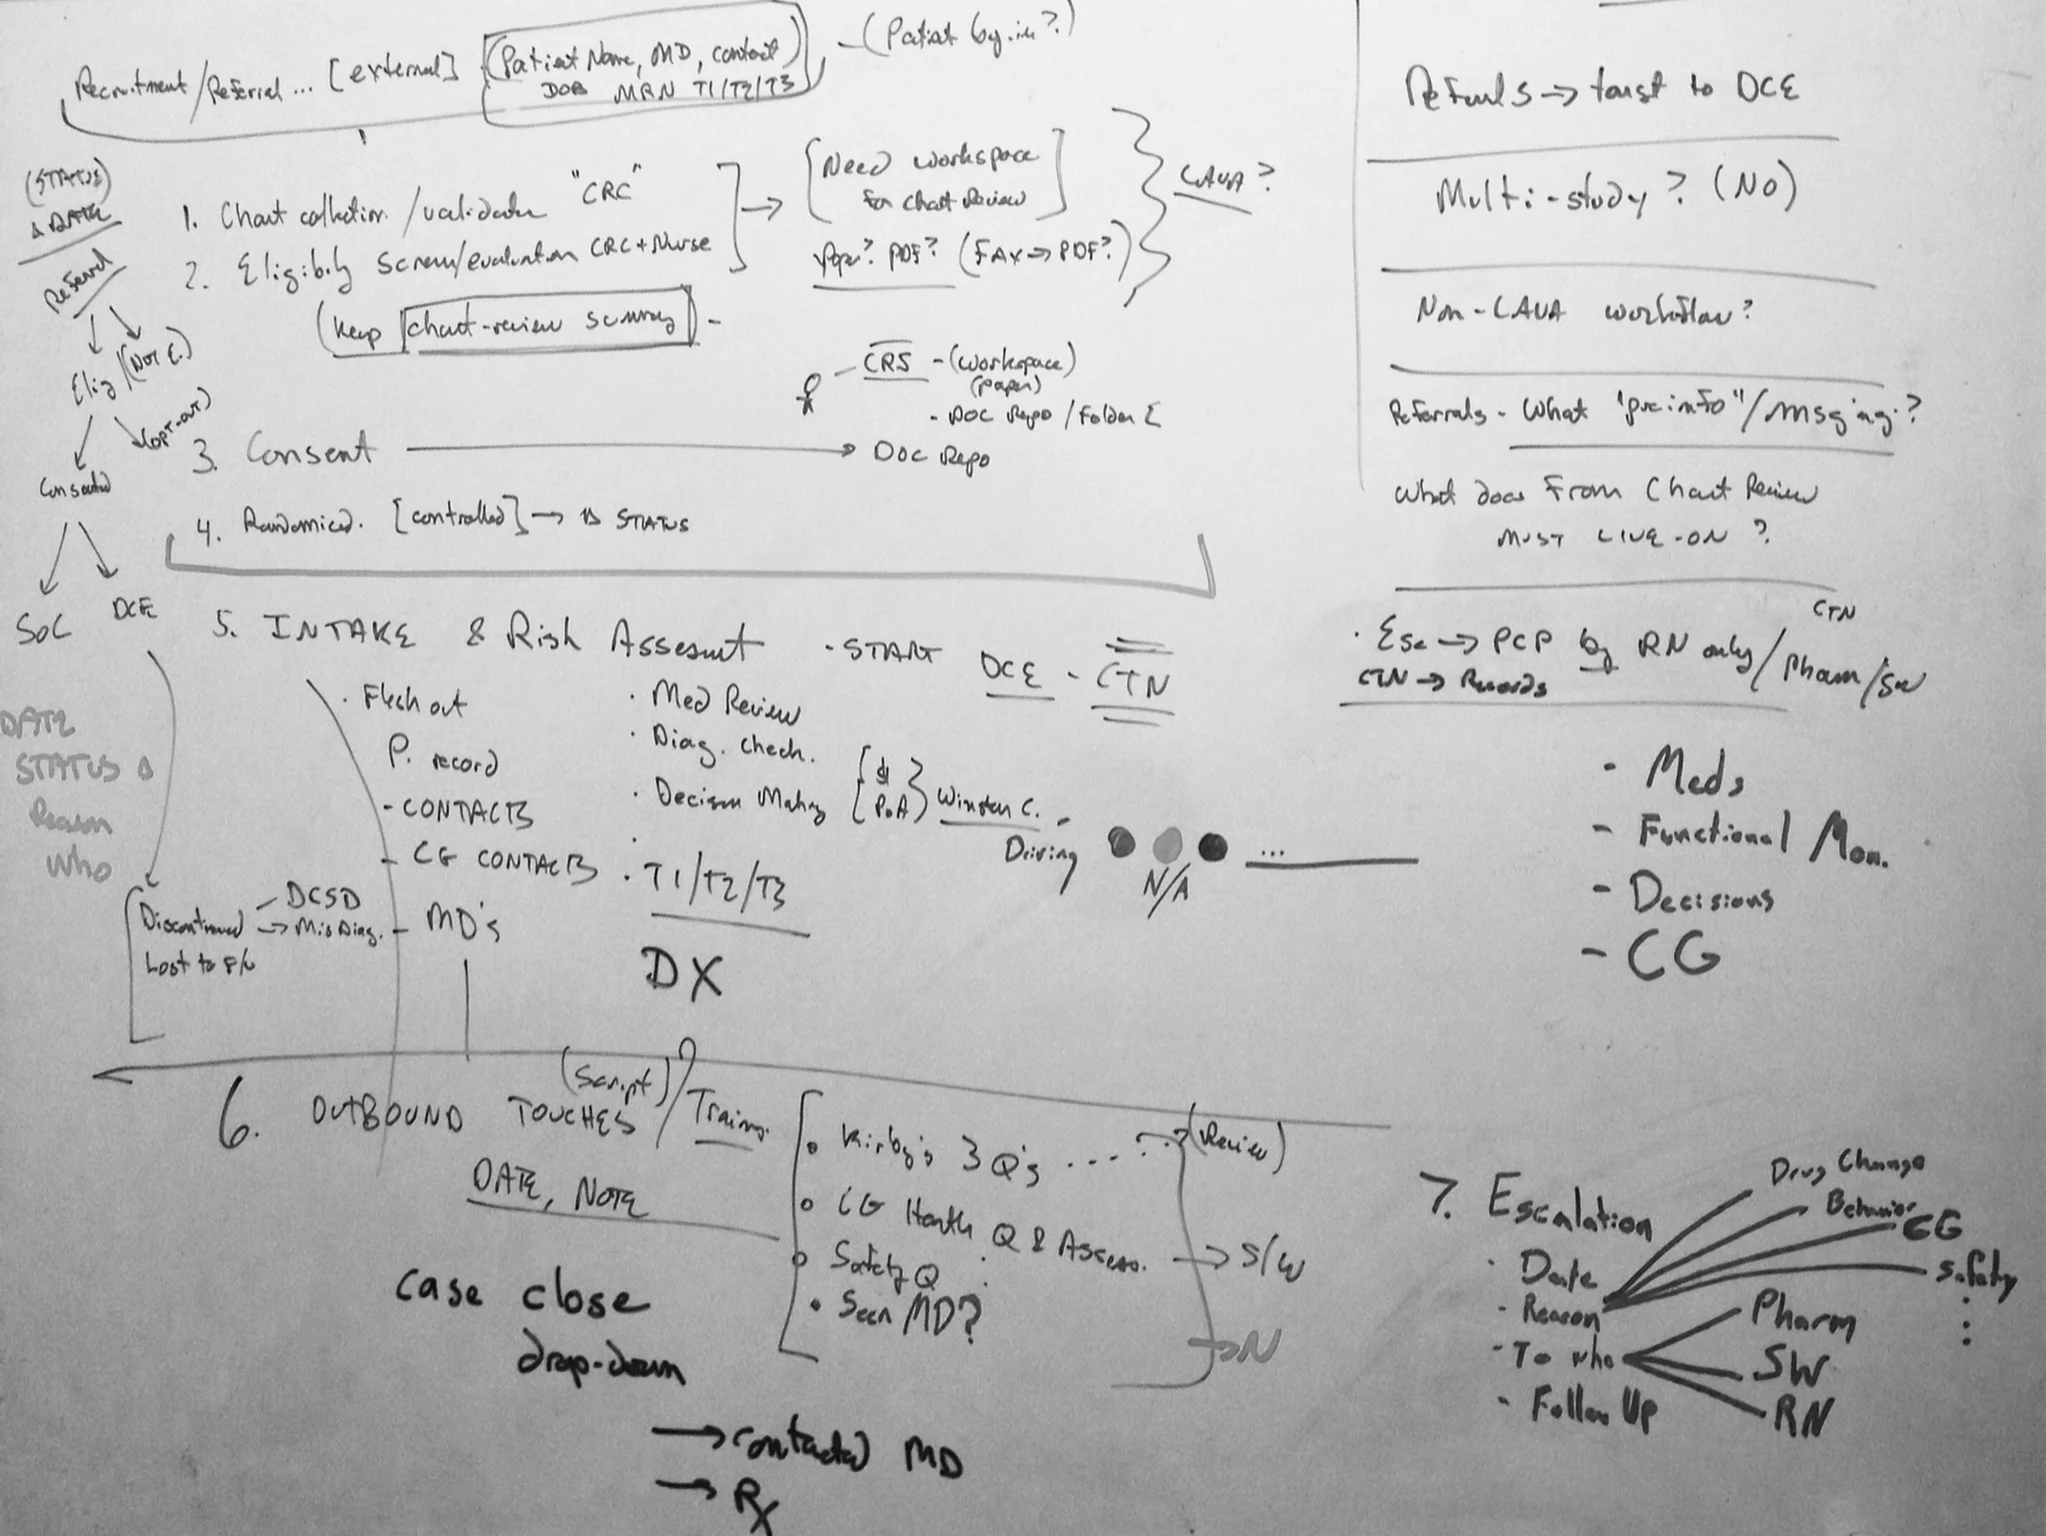 Recruitment/Referral... [external] (Patient Name, MD, contact) - (Patient by-in?)
DOB MRN T1/T2/T3
(STATUS)
Δ DATE
Referred
Elig (Not E.)
(opt-out)
Consented
SOC DCE
1. Chart collection/validation "CRC"
2. Eligibility Screen/evaluation CRC+Nurse
(Keep chart-review summary) -
[Need workspace
for Chart Review]
Paper? PDF? (FAX → PDF?)
CAVA?
CRS - (workspace)
(paper)
- DOC Repo/Folder
3. Consent → DOC Repo
4. Randomized. [controlled] → Δ STATUS
5. INTAKE & Risk Assesmt - START DCE - CTN
· Flesh out
P. record
- CONTACTS
- CG CONTACTS
- MD's
· Med Review
· Diag. Check.
· Decision Making { PoA } Winston C. -
Driving ...
N/A
· T1/T2/T3
DX
DATE
STATUS Δ
Reason
Who
Discontinued - DCSD
→ MisDiag.
Lost to F/U
6. OUTBOUND TOUCHES (Script)/Training
DATE, NOTE
· Kirby's 3 Q's ... ? (Review)
· CG Health Q & Assess. → S/W
· Safety Q
· Seen MD?
→ N
case close
drop-down
→ contacted MD
→ Rx
Referrals → to DCE
Multi-study? (NO)
Non-CAVA workflow?
Referrals - What "pre-info"/msging?
What does From Chart Review
MUST LIVE-ON?
CTN
· Esc → PCP by RN only/Pharm/SW
CTN → Records
- Meds
- Functional Mon.
- Decisions
- CG
7. Escalation
· Date
· Reason
· To who
· Follow Up
Drug Change
Behavior
CG
Safety
Pharm
SW
RN